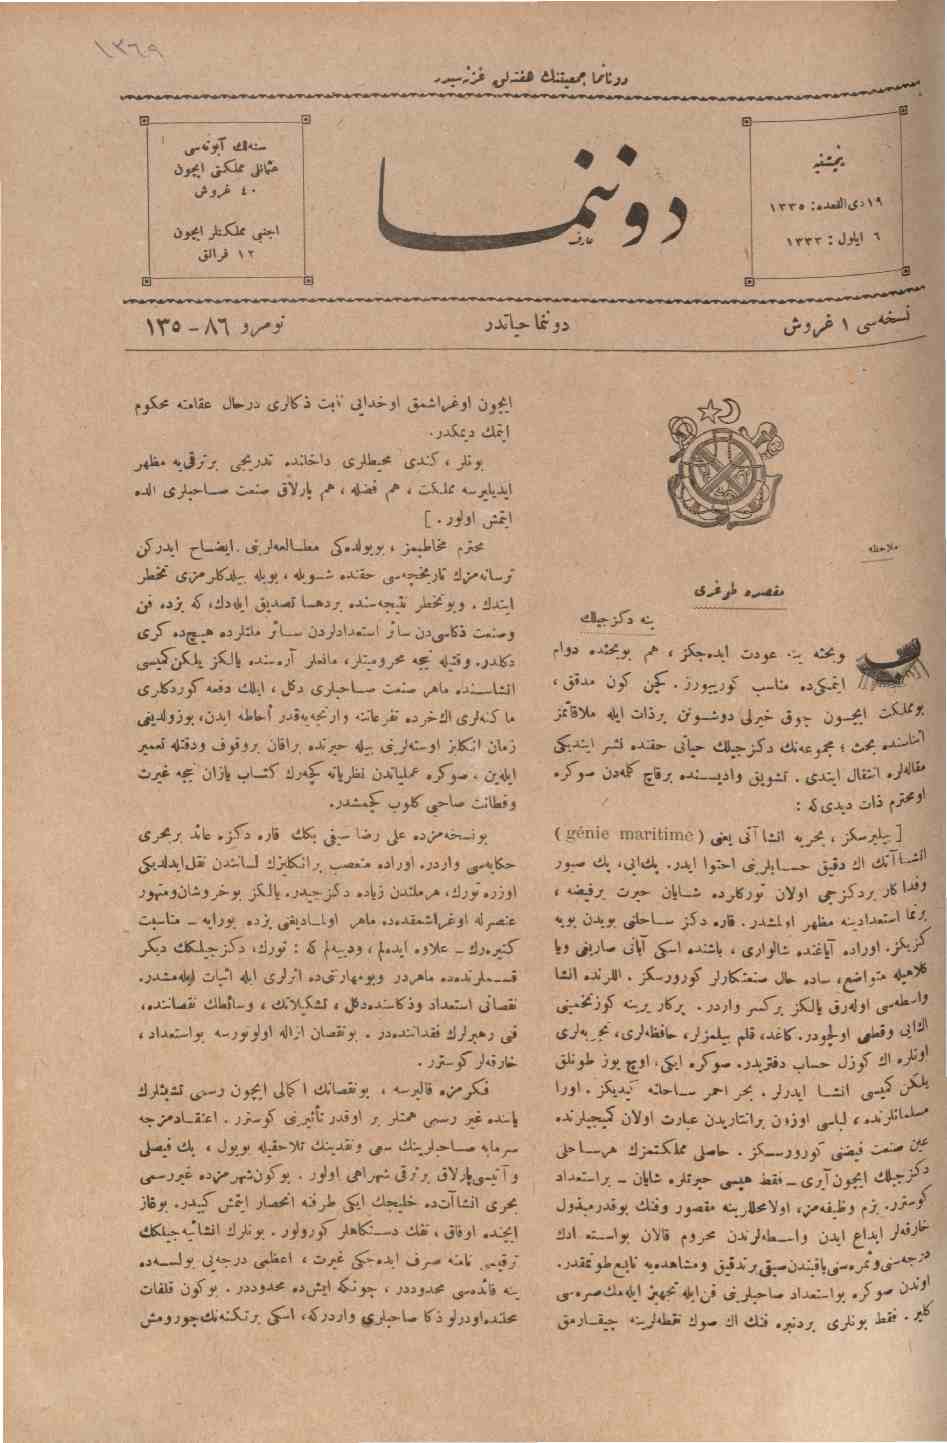 ١٣٦٩
دونانما جمعیتنك هفته‌لق غزته‌سیدر
پنجشنبه
١٩ ذی القعده : ١٣٣٥
٦ ایلول : ١٣٣٣
دوننما
عارف
سنه‌لك آبونه‌سی
عثمانلی مملكتی ایچون
٤٠ غروش
اجنبی مملكتلر ایچون
١٢ فرانق
نسخه‌سی ١ غروش
دوننما حیاتدر
نومرو ٨٦ – ١٣٥
ملاحظه
مقصده طوغری
ینه دكزجیلك
وبحثه ینه عودت ایده‌جكز ، هم بوبحثده دوام
ایتمكی‌ده مناسب كورییورز . كچن كون مدقق ،
بومملكت ایچون چوق خیرلی دوشونن برذات ایله ملاقاتمز
اثناسنده بحث ؛ مجموعه‌نك دكزجیلك حیاتی حقنده نشر ایتدیكی
مقاله‌لره انتقال ایتدی . تشویق وادیسنده برقاچ كله‌دن صوكره
اومحترم ذات دیدی كه :
[ بیلیرسكز ، بحریه انشا آتی یعنی ( génie maritime )
انشا آتك اك دقیق حسابلرینی احتوا ایدر. پك‌ایی، پك صبور
وفداكار بردكزجی اولان توركلرده شایان حیرت برفیضه ،
برنما استعدادینه مظهر اولمشدر. قاره دكز ساحلنی بویدن بویه
كزیكز. اوراده آیاغنده شالواری ، باشنده اسكی آبانی صاریغی ویا
كلاهیله متواضع، ساده حال صنعتكارلر كورورسكز . اللرنده انشا
واسطه‌سی اوله‌رق یالكز بركسر واردر. پركار یرینه كوزتخمینی
اك‌ایی وقطعی اولچودر. كاغد، قلم بیلمزلر، حافظه‌لری، تجربه‌لری
اونلره اك كوزل حساب دفتریدر. صوكره ایكی، اوچ یوز طونلق
یلكن كمیسی انشا ایدرلر. بحر احمر ساحلنه كیدیكز . اورا
مسلمانلرنده ، لباسی اوزون برانتاریدن عبارت اولان كمیجیلرنده
عین صنعت فیضنی كورورسكز . حاصلی مملكتمزك هرساحلی
دكزجیلك ایچون آیری – فقط هپسی حیرتلره شایان – براستعداد
كوسترر. بزم وظیفه‌مز، اولا محللرینه مقصور وفنك بوقدرمبذول
خارقه‌لر ابداع ایدن واسطه‌لرندن محروم قالان بواسته ادك
درجه‌سنی وثمره‌سنی یاقیندن صیقی برتدقیق ومشاهده‌یه تابع طوتمقدر.
اوندن صوكره بواستعداد صاحبلرینی فن‌ایله تجهیز ایله‌مك صره‌سی
كلیر. فقط بونلری بردنبره فنك اك صوك نقطه‌لرینه چیقارمق
ایچون اوغراشمق اوخدایی نابت ذكالری درحال عقامته محكوم
ایتمك دیمكدر.
بونلر ، كندی محیطلری داخلنده تدریجی برترقی‌یه مظهر
ایدیلیرسه مملكت ، هم فضله ، هم پارلاق صنعت صاحبلری الده
ایتمش اولور . ]
محترم مخاطبمز ، بویولده‌كی مطالعه‌لرینی ایضاح ایدركن
ترسانه‌مزك تاریخچه‌سی حقنده شویله ، بویله بیلدكلرمزی تخطر
ایتدك . وبوتخطر نتیجه‌سنده بردها تصدیق ایله‌دك، كه بزده فن
وصنعت ذكاسی‌دن سائر استعدادلردن سائر ملتلرده هیچ‌ده كری
دكلدر. وقتیله نیجه محرومیتلر، مانعلر آره‌سنده یالكز یلكن كمیسی
انشاسنده ماهر صنعت صاحبلری دكل ، ایلك دفعه كوردكلری
ماكنه‌لری اك‌خرده تفرعاتنه وارنجه‌یه‌قدر احاطه ایدن، بوزولدیغی
زمان انكلیز اوسته‌لرینی بیله حیرتده براقان بروقوف ودقتله تعمیر
ایله‌ین ، صوكره عملیاتدن نظریاته كچه‌رك كتاب یازان نیجه غیرت
وفطانت صاحبی كلوب كچمشدر.
بونسخه‌مزده علی رضا سیفی بكك قاره دكزه عائد بربحری
حكایه‌سی واردر. اوراده متعصب برانكلیزك لسانندن نقل‌ایدلدیكی
اوزره تورك، هرملتدن زیاده دكزجیدر. یالكز بوخروشان‌ومتهور
عنصرله اوغراشمقده‌ده ماهر اولمادیغنی بزده بورایه – مناسبت
كتیره‌رك – علاوه ایده‌لم ، ودییه‌لم كه : تورك، دكزجیلكك دیكر
قسملرنده‌ده ماهردر وبومهارتی‌ده اثرلری ایله اثبات ایله‌مشدر.
نقصانی استعداد وذكاسنده‌دكل ، تشكیلاتك ، وسائطك نقصاننده،
فنی رهبرلرك فقداننده‌در . بونقصان ازاله اولونورسه بواستعداد ،
خارقه‌لر كوسترر .
فكرمزه قالیرسه ، بونقصانك اكمالی ایچون رسمی تشبثلرك
یاننده غیر رسمی همتلر بر اوقدر تأثیرینی كوسترر . اعتقادمزجه
سرمایه صاحبلرینك سعی ونقدینك تلاحقیله بویول ، پك فیضلی
وآتیسی‌پارلاق برترقی شهراهی اولور . بوكون‌شهرمزده غیررسمی
بحری انشاآت‌ده خلیجك ایكی طرفنه انحصار ایتمش كبیدر. بوغاز
ایچنده اوفاق ، تفك دستكاهلر كورولور . بونلرك انشائیه‌جیلكك
ترقیسی نامنه صرف ایده‌جكی غیرت ، اعظمی درجه‌یی بولسه‌ده
ینه فائده‌سی محدوددر ، چونكه ایش‌ده محدوددر . بوكون قلفات
محلنده‌اودرلو ذكا صاحبلری واردركه، اسكی برتكنه‌نك‌چورومش